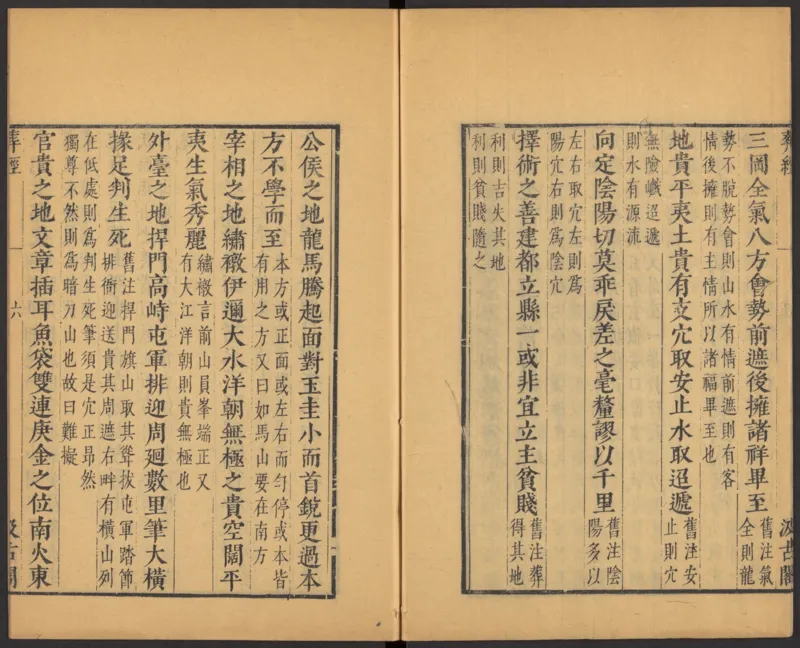 葬經
汲古閣
三岡全氣八方會勢前遮後擁諸祥畢至舊注氣全則龍
勢不脫勢會則山水有情前遮則有客
情後擁則有主情所以諸福畢至也
地貴平夷土貴有支穴取安止水取迢遞舊注安止則穴
無險巇迢遞
則水有源流
向定陰陽切莫乖戾差之毫釐謬以千里舊注陰陽多以
左右取穴左則爲
陽穴右則爲陰穴
擇術之善建都立縣一或非宜立主貧賤舊注葬得其地
利則吉失其地
利則貧賤隨之
公侯之地龍馬騰起面對玉圭小而首銳更過本
方不學而至本方或正面或左右而勻停或本皆
有用之方又曰如馬山要在南方
宰相之地繡橔伊邇大水洋朝無極之貴空闊平
夷生氣秀麗繡橔言前山員峯端正又
有大江洋朝則貴無極也
外臺之地捍門高峙屯軍排迎周迴數里筆大橫
椽足判生死舊注捍門旗山取其聳拔屯軍踏節
排衙迎送貴其周遮右畔有橫山列
在低處則爲判生死筆須是穴正昂然
獨尊不然則爲暗刀山也故曰難擬
官貴之地文章插耳魚袋雙連庚金之位南火東
葬經
六
汲古閣